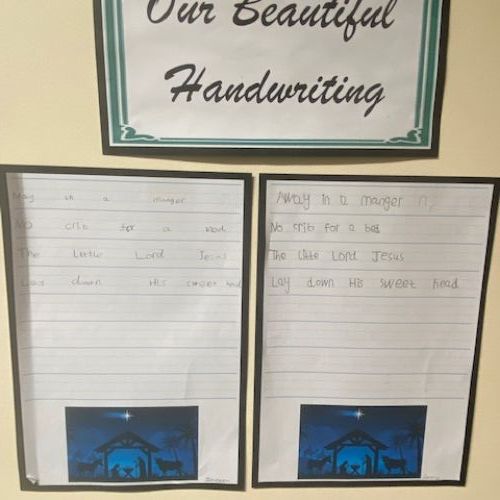 Our Beautiful
Handwriting
May in a manger
No crib for a bed
The Little Lord Jesus
Lay down His sweet head
Away in a manger n,
No crib for a bed
The little Lord Jesus
Lay down His sweet head